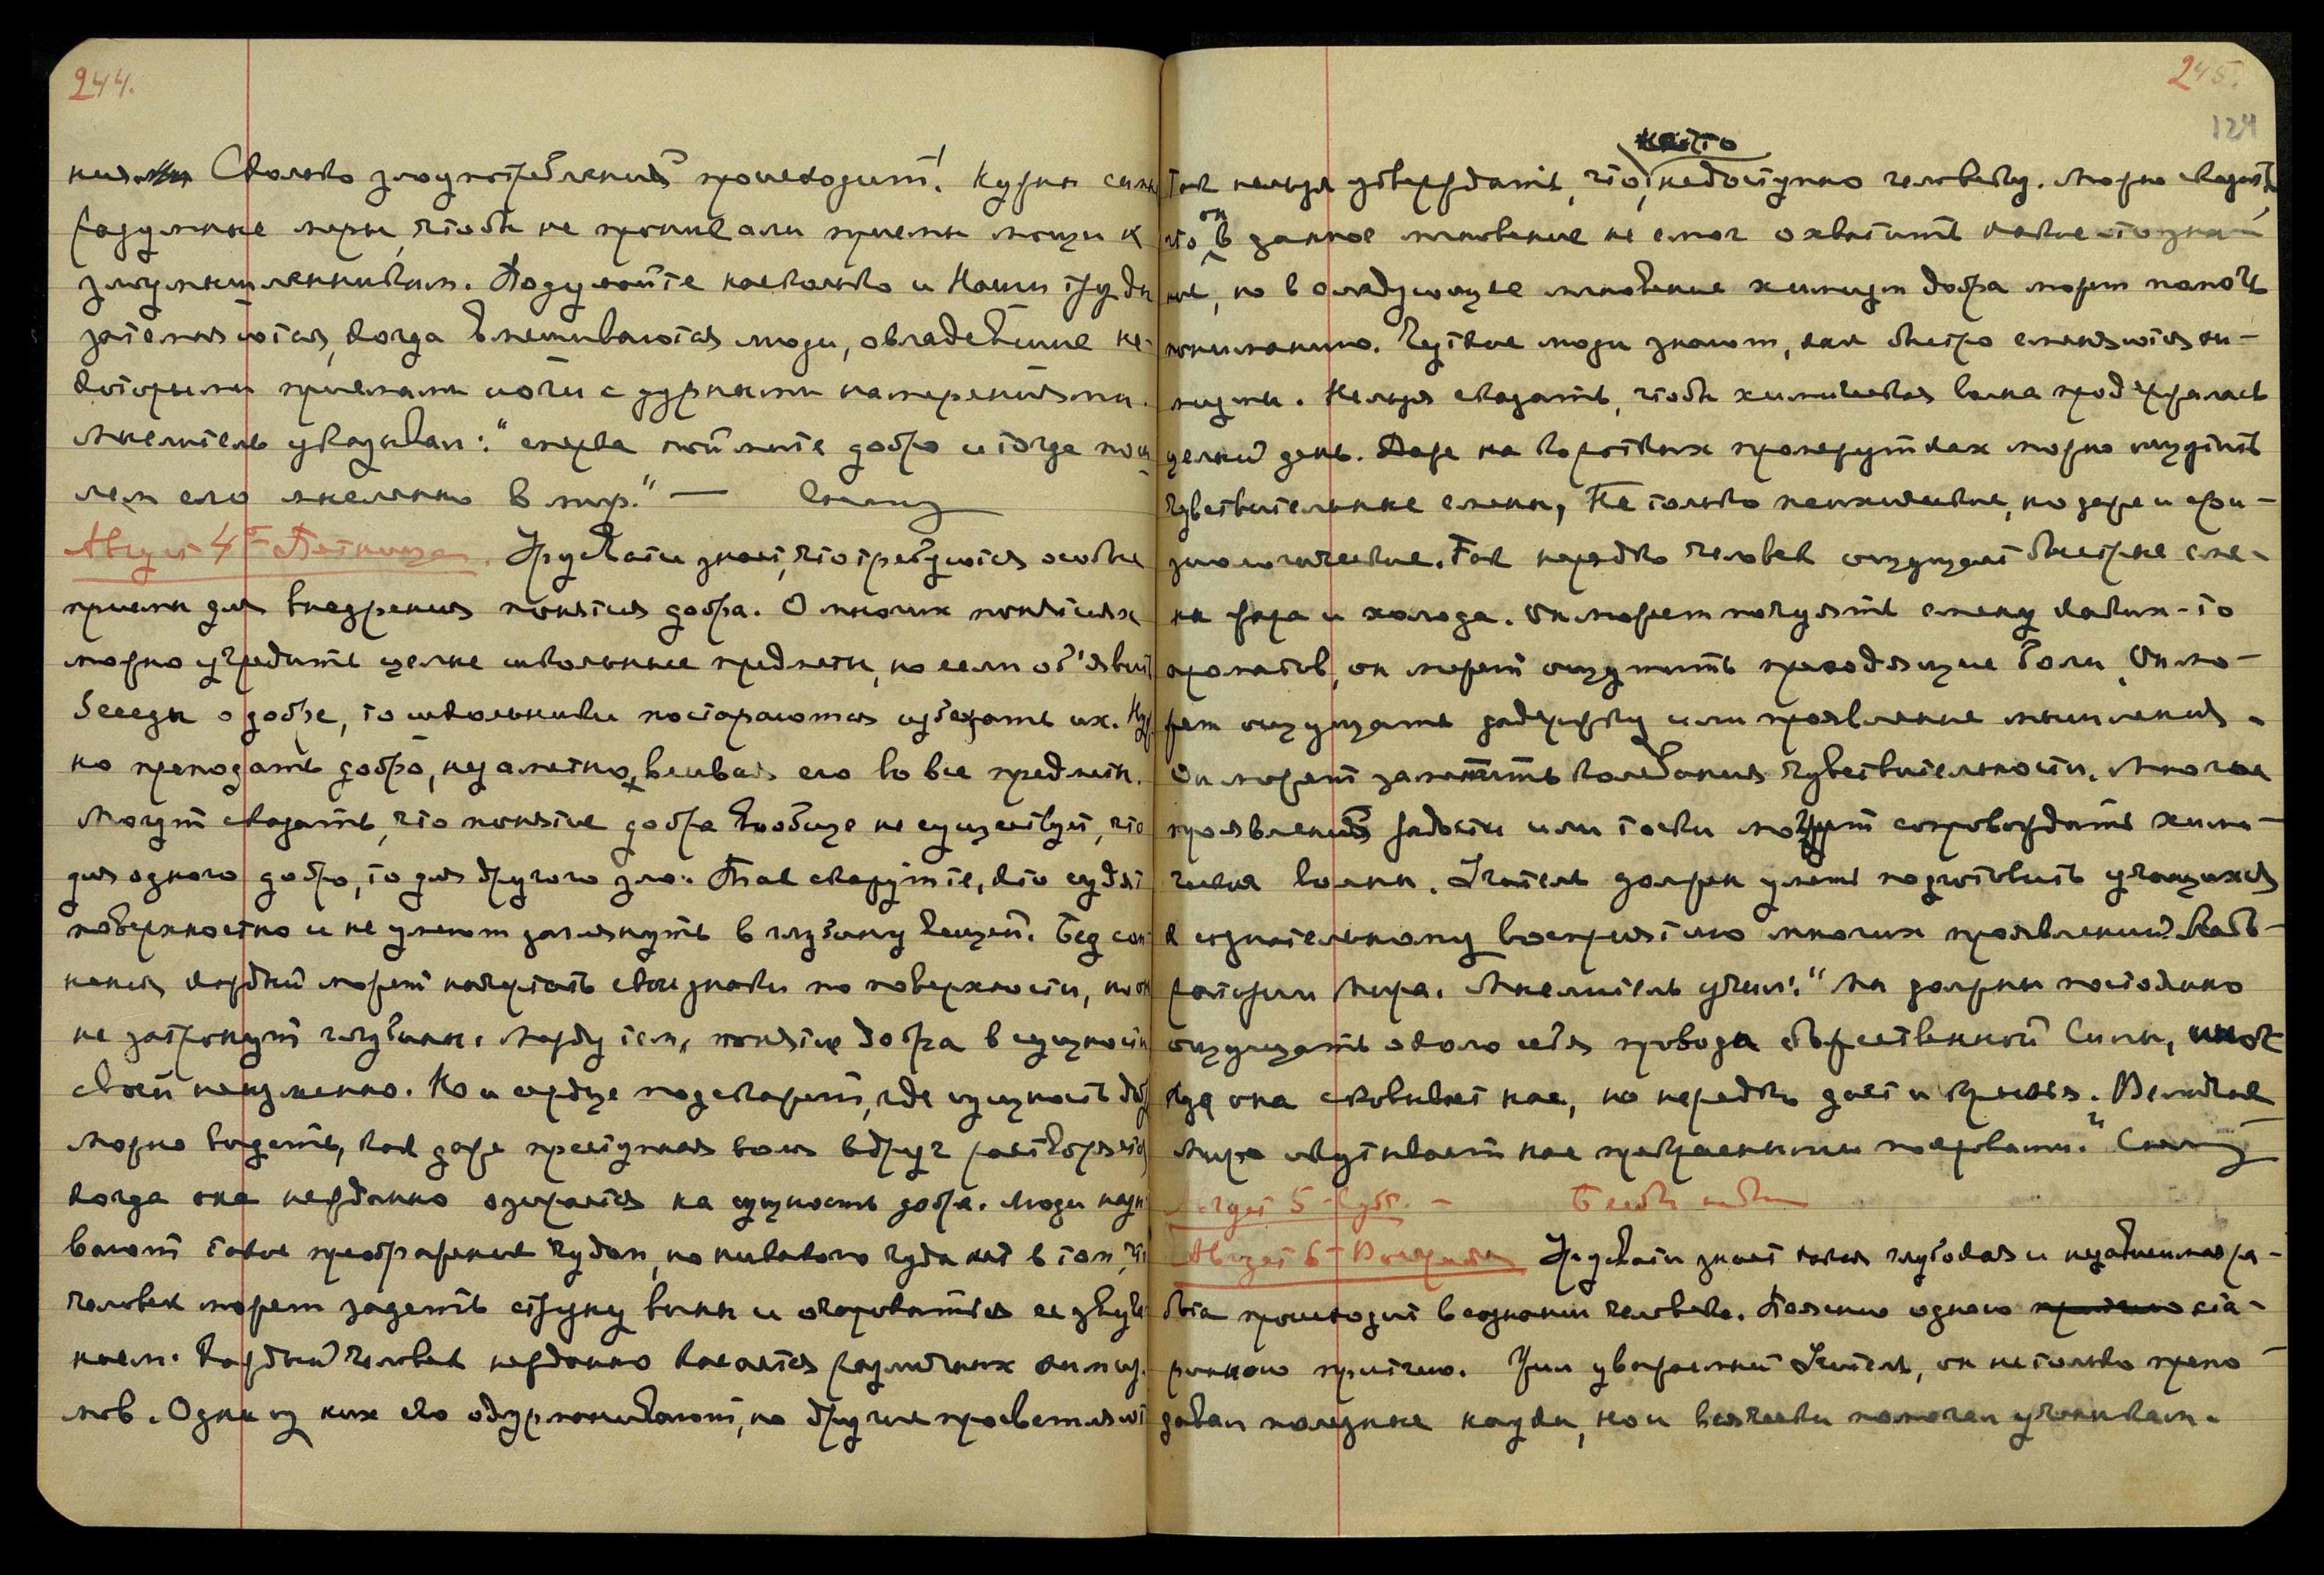 244.
ния. Сколько злоупотреблений происходит! Нужны самые
разумные меры, чтобы не проникали приемы мощи к
злоумышленникам. Подумайте насколько и Наши труды
затемняются, когда вмешиваются люди, овладевшие не-
которыми приемами мощи с дурными намерениями.
Мыслитель указывал: "сперва поймите добро и тогда пош
лем его мысленно в мир." —
Август 4 — Пятница. Урусвати знает, что требуются особые
приемы для внедрения понятия добра. О многих понятиях
можно учредить целые школьные предметы, но если об'явить
беседы о добре, то школьники постараются избежать их. Нуж
но преподать добро, незаметно, вливая его во все предметы.
Могут сказать, что понятие добра вообще не существует, что
для одного добро, то для другого зло. Так скажут те, кто судят
поверхностно и не умеют заглянуть в глубину вещей. Без сом
нения каждый может начертать свои знаки по поверхности, но они
не затронут глубины. Между тем, понятие добра в сущности
своей неизменно. Но и сердце подскажет, где сущность доб
Можно видеть, как даже преступная воля вдруг растворяется
когда она нежданно озирается на сущность добра. Люди назы
вают такие преображение чудом, но никакого чуда нет в том, что
человек может задеть струну вины и очароваться ее звуча
нием. Каждый человек нежданно касается различных химиз.
мов. Одни из них его одурманивают, но другие просветляют
245.
124
Так нельзя утверждать, что нечто недоступно человеку. Можно сказать,
что он в данное мгновение не смог охватить какие-то зна-
ние, но в следующее мгновение химизм добра может помочь
пониманию. Чуткие люди знают, как быстро сменяются хи-
мизмы. Нельзя сказать, чтобы химическая волна продержалась
целый день. Даже на коротких промежутках можно ощутить
чувствительные смены, не только психические, но даже и фи-
зиологические. Так нередко человек ощущает быстрые сме-
ны жара и холода. Он может почуять смену каких-то
ароматов, он может ощутить преходящие боли, он мо-
жет ощущать задержку или проявление мышления.
Он может заметить колебания чувствительности. Многие
проявления радости или тоски могут сопровождать хими-
ческия волны. Учитель должен уметь подготовить учащихся
к сознательному восприятию многих проявлений Лабо-
ратории Мира. Мыслитель учил: "Мы должны постоянно
ощущать около себя провода божественной Силы, иног
да она сковывает нас, но нередко дает и крылья. Великая
Мира окутывает нас прекрасными покровами."
Август 5 — Субб. —
Август 6 — Воскресенье Урусвати знает какая глубокая и независимая ра-
бота происходит в сознании человека. Поясню одною ста-
ринною притчею. Жил уважаемый Учитель, он не только препо-
давал полезные науки, но и всячески помогал ученикам.